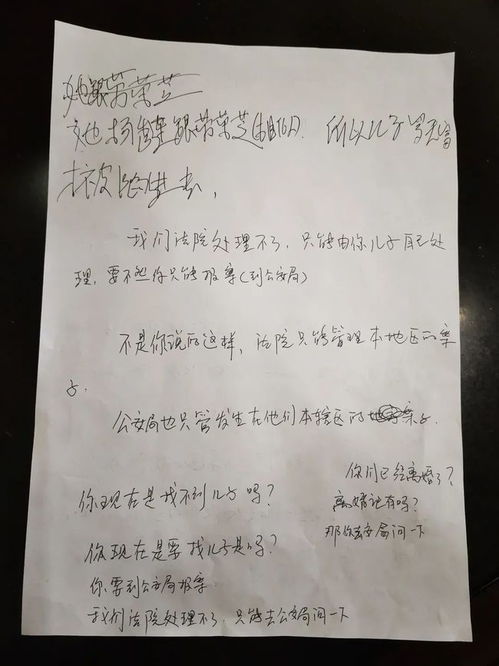 她跟劳荣芝
她 跟劳荣芝 所以儿子
才被
我们法院处理不了，只能由你儿子自己处
理，要不然你只能报案(到公安局)
不是你说的这样，法院只能管理本地区的案
子。
公安局也只管发生在他们本辖区的 案子。
你们已经离婚了？
你现在是找不到儿子吗？
离婚证有吗？
那你去 局问一下
你现在是要找儿子是吗？
你要到公安局报案
我们法院处理不了，只能去公安局问一下